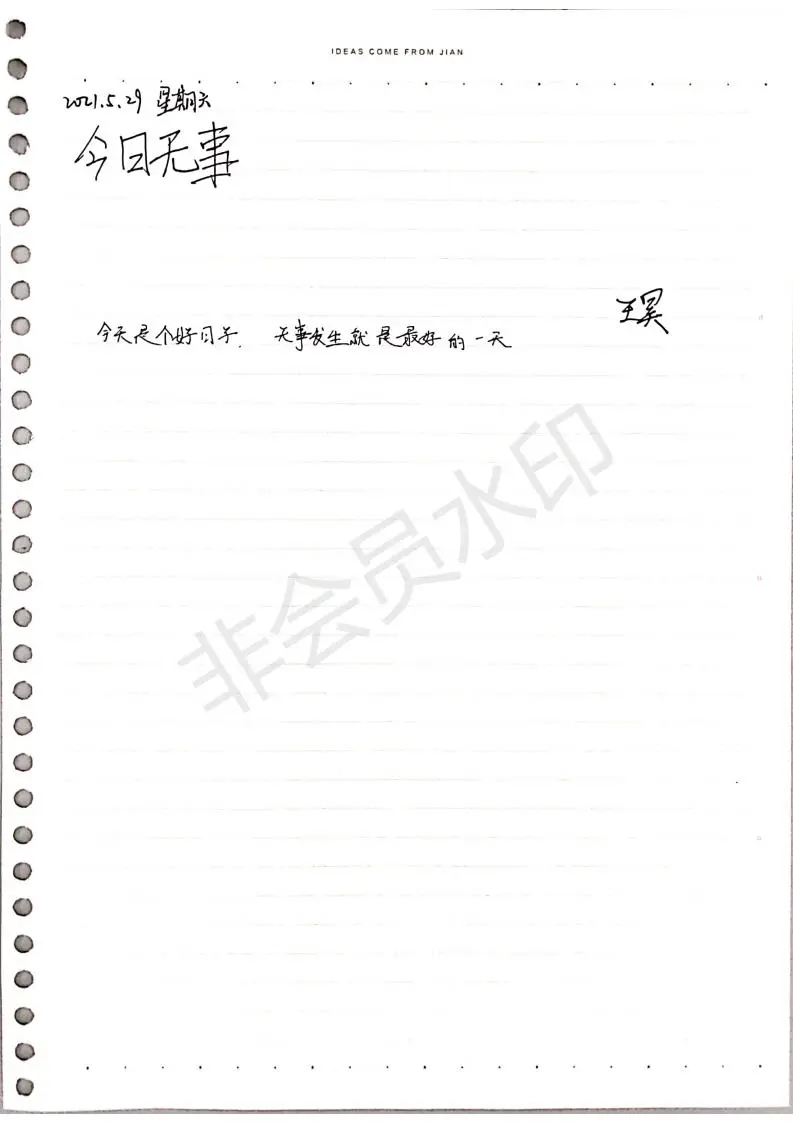 IDEAS COME FROM JIAN
2021.5.29 星期六
今日无事
王昊
今天是个好日子. 无事发生就是最好的一天
非会员水印